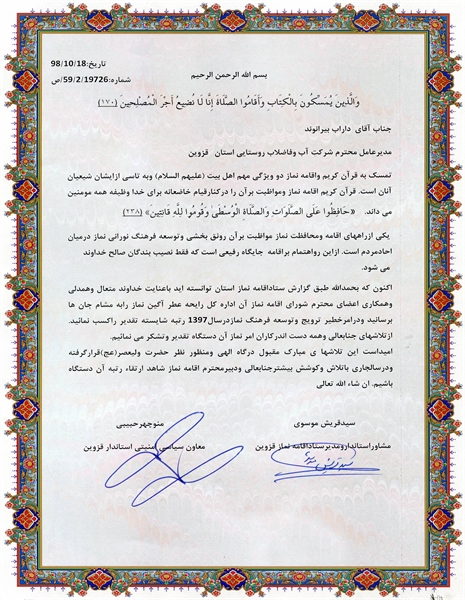 تاریخ:98/10/18
شماره:59/2/19726/ص
بسم الله الرحمن الرحیم
وَالَّذِينَ يُمَسِّكُونَ بِالْكِتَابِ وَأَقَامُوا الصَّلَاةَ إِنَّا لَا نُضِيعُ أَجْرَ الْمُصْلِحِينَ (١٧٠)
جناب آقای داراب بیرانوند
مدیرعامل محترم شرکت آب وفاضلاب روستایی استان قزوین
تمسک به قرآن کریم واقامه نماز دو ویژگی مهم اهل بیت (علیهم السلام) وبه تاسی ازایشان شیعیان
آنان است. قرآن کریم اقامه نماز ومواظبت برآن را درکنارقیام خاضعانه برای خدا وظیفه همه مومنین
می داند. «حَافِظُوا عَلَى الصَّلَوَاتِ وَالصَّلَاةِ الْوُسْطَىٰ وَقُومُوا لِلَّهِ قَانِتِينَ» (٢٣٨)
یکی ازراههای اقامه ومحافظت نماز مواظبت برآن رونق بخشی وتوسعه فرهنگ نورانی نماز درمیان
احادمردم است. ازاین رواهتمام براقامه جایگاه رفیعی است که فقط نصیب بندگان صالح خداوند
می شود.
اکنون که بحمدالله طبق گزارش ستاداقامه نماز استان توانسته اید باعنایت خداوند متعال وهمدلی
وهمکاری اعضای محترم شورای اقامه نماز آن اداره کل رایحه عطر آگین نماز رابه مشام جان ها
برسانید ودرامرخطیر ترویج وتوسعه فرهنگ نمازدرسال1397 رتبه شایسته تقدیر راکسب نمائید.
ازتلاشهای جنابعالی وهمه دست اندرکاران امر نماز آن دستگاه تقدیر وتشکر می نمائیم.
امیداست این تلاشها ی مبارک مقبول درگاه الهی ومنظور نظر حضرت ولیعصر(عج)قرارگرفته
ودرسالجاری باتلاش وکوشش بیشترجنابعالی ودبیرمحترم اقامه نماز شاهد ارتقاء رتبه آن دستگاه
باشیم. ان شاء الله تعالی
سیدقریش موسوی
مشاوراستاندارومدیرستاداقامه نماز قزوین
منوچهرحبیبی
معاون سیاسی امنیتی استاندار قزوین